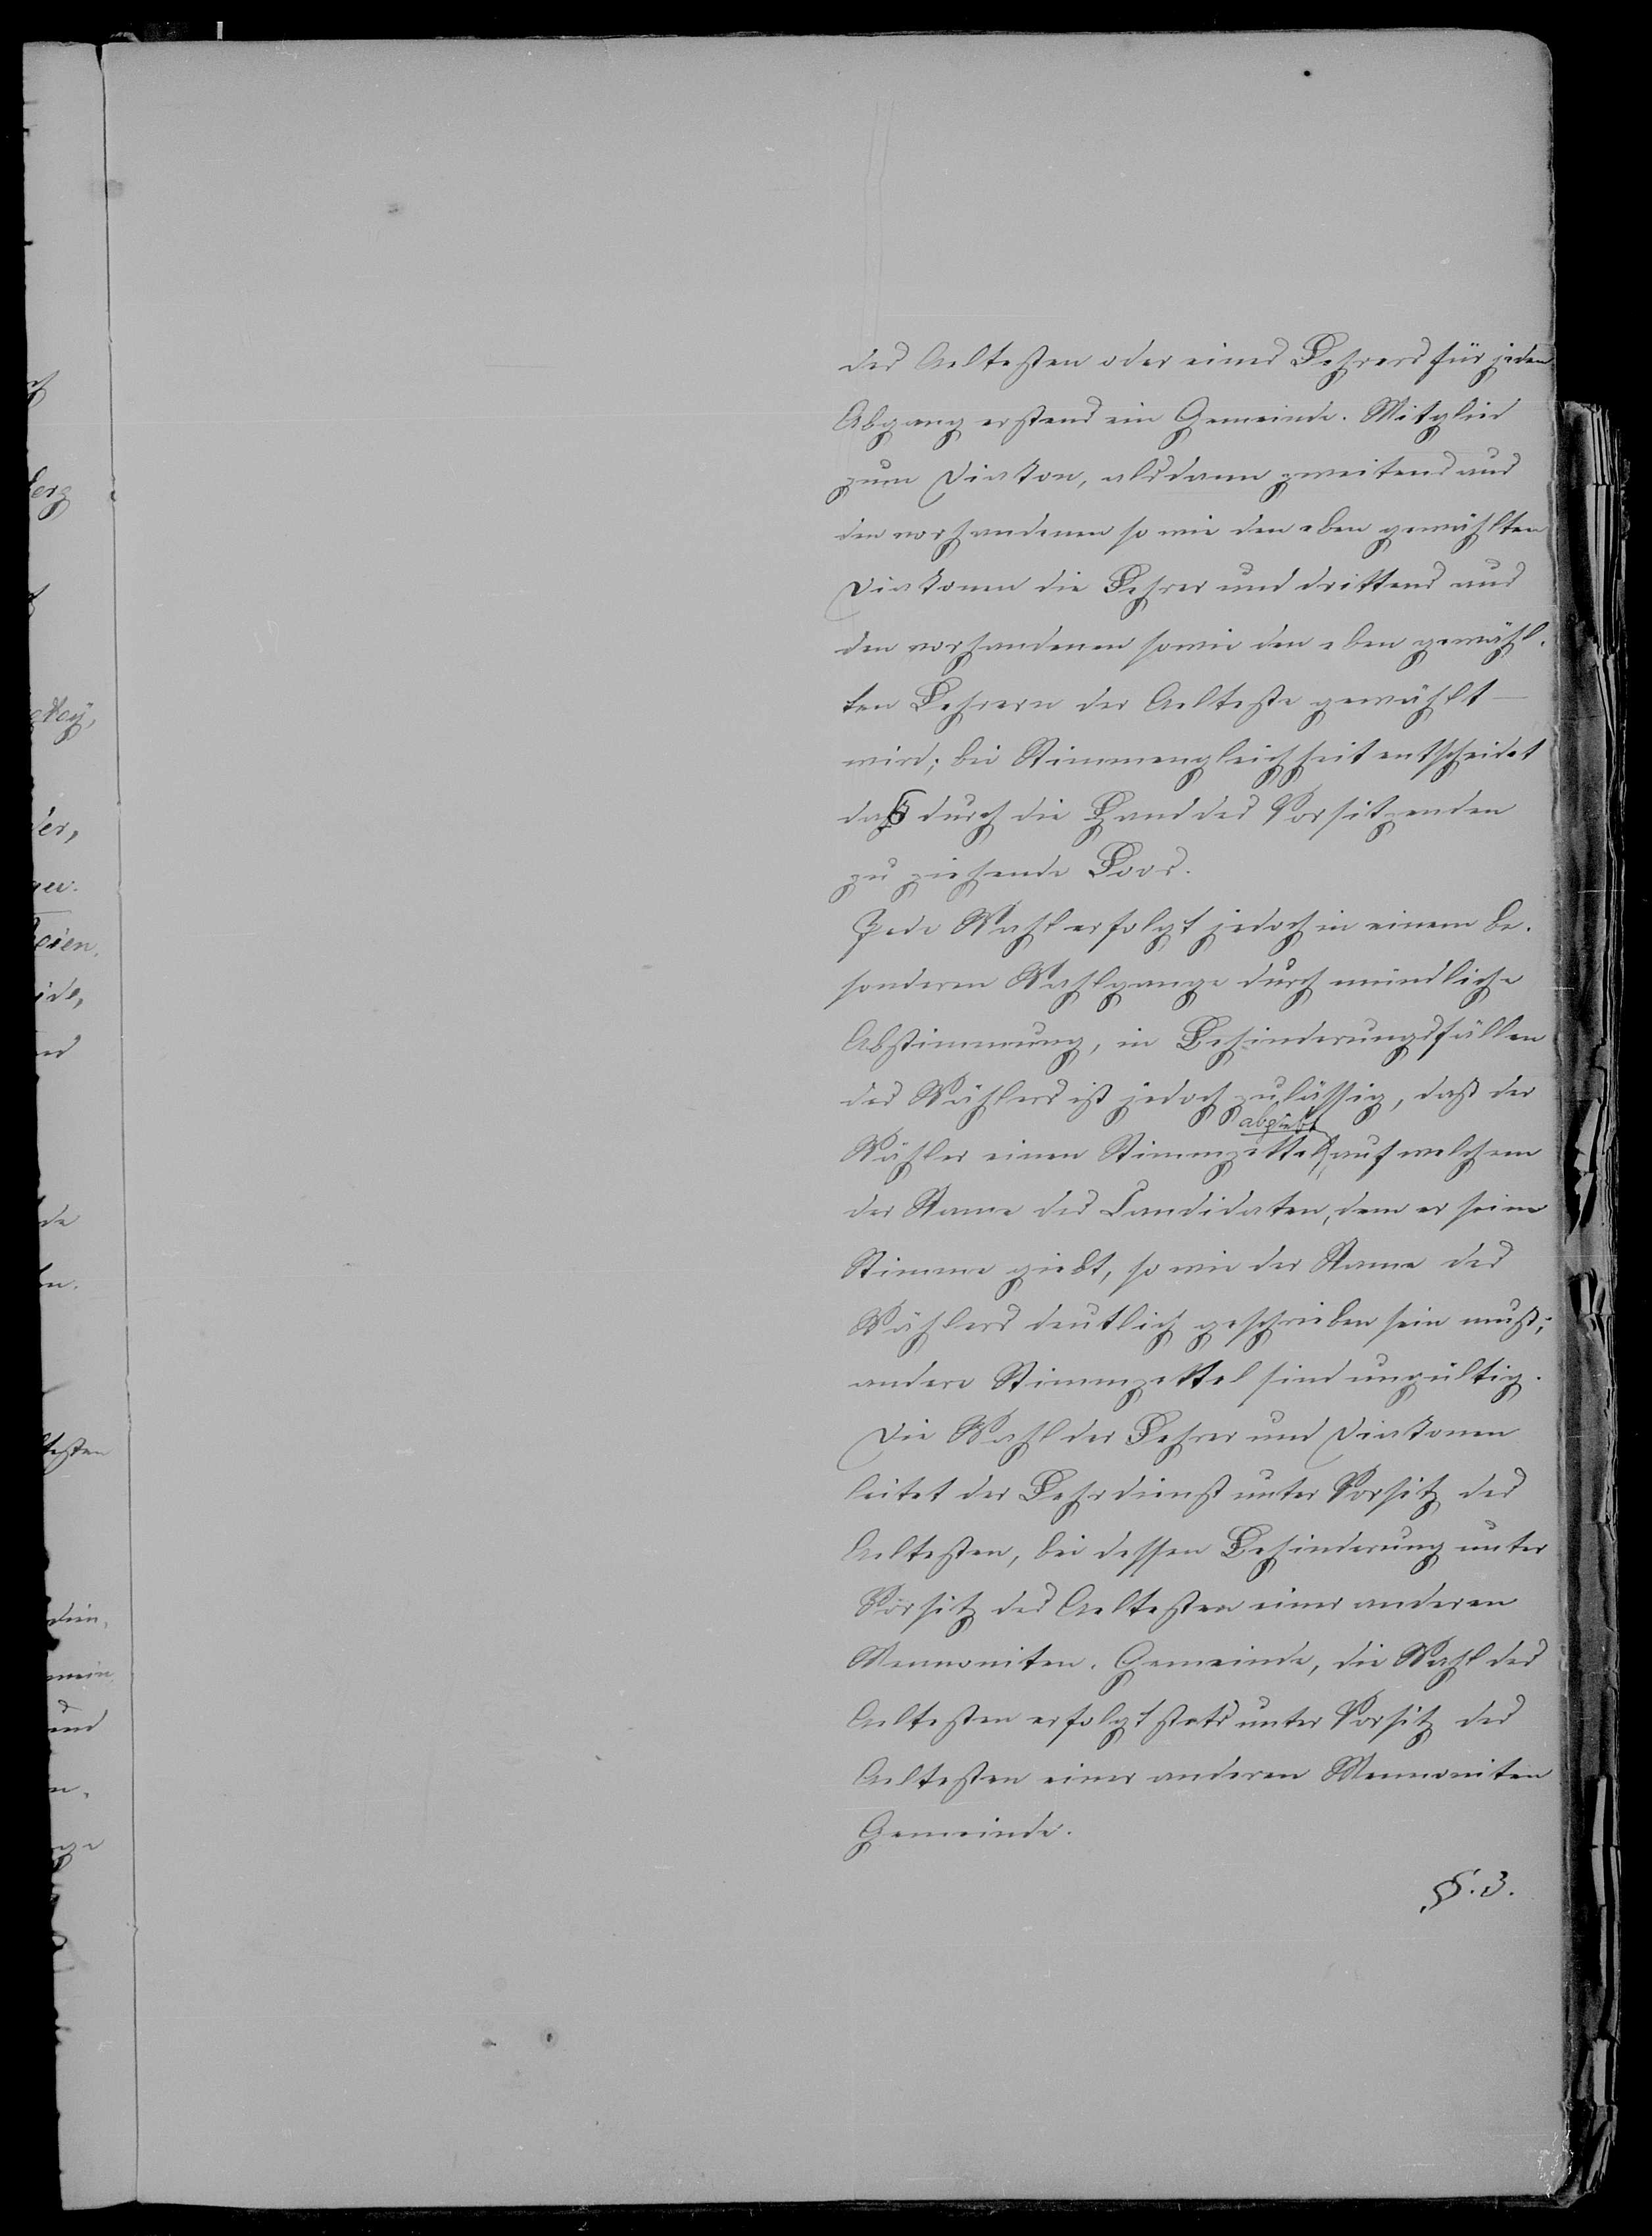 des Aeltesten oder eines Lehrers für jeden
Abgang erstens ein Gemeinde-Mitglied
zum Diakon, alsdann zweitens aus
den vorhandenen so wie den eben gewählten
Diakonen die Lehrer und drittens aus
den vorhandenen sowie den eben gewähl-
ten Lehrern der Aelteste gewählt —
wird; bei Stimmengleichheit entscheidet
das durch die Hand des Vorsitzenden
zu ziehende Loos.
Jede Wahl erfolgt jedoch in einem be-
sonderen Wahlgange durch mündliche
Abstimmung, in Behinderungsfällen
des Wählers ist jedoch zulässig, daß der
abgiebt
Wähler einen Stimmzettel, auf welchem
der Name des Candidaten, dem er seine
Stimme giebt, so wie der Name des
Wählers deutlich geschrieben sein muß;
andere Stimmzettel sind ungültig.
Die Wahl der Lehrer und Diakonen
leitet der Lehrdienst unter Vorsitz des
Aeltesten, bei dessen Behinderung unter
Vorsitz des Aeltesten einer anderen
Mennoniten-Gemeinde, die Wahl des
Aeltesten erfolgt stets unter Vorsitz des
Aeltesten einer anderen Mennoniten
Gemeinde.
§. 3.